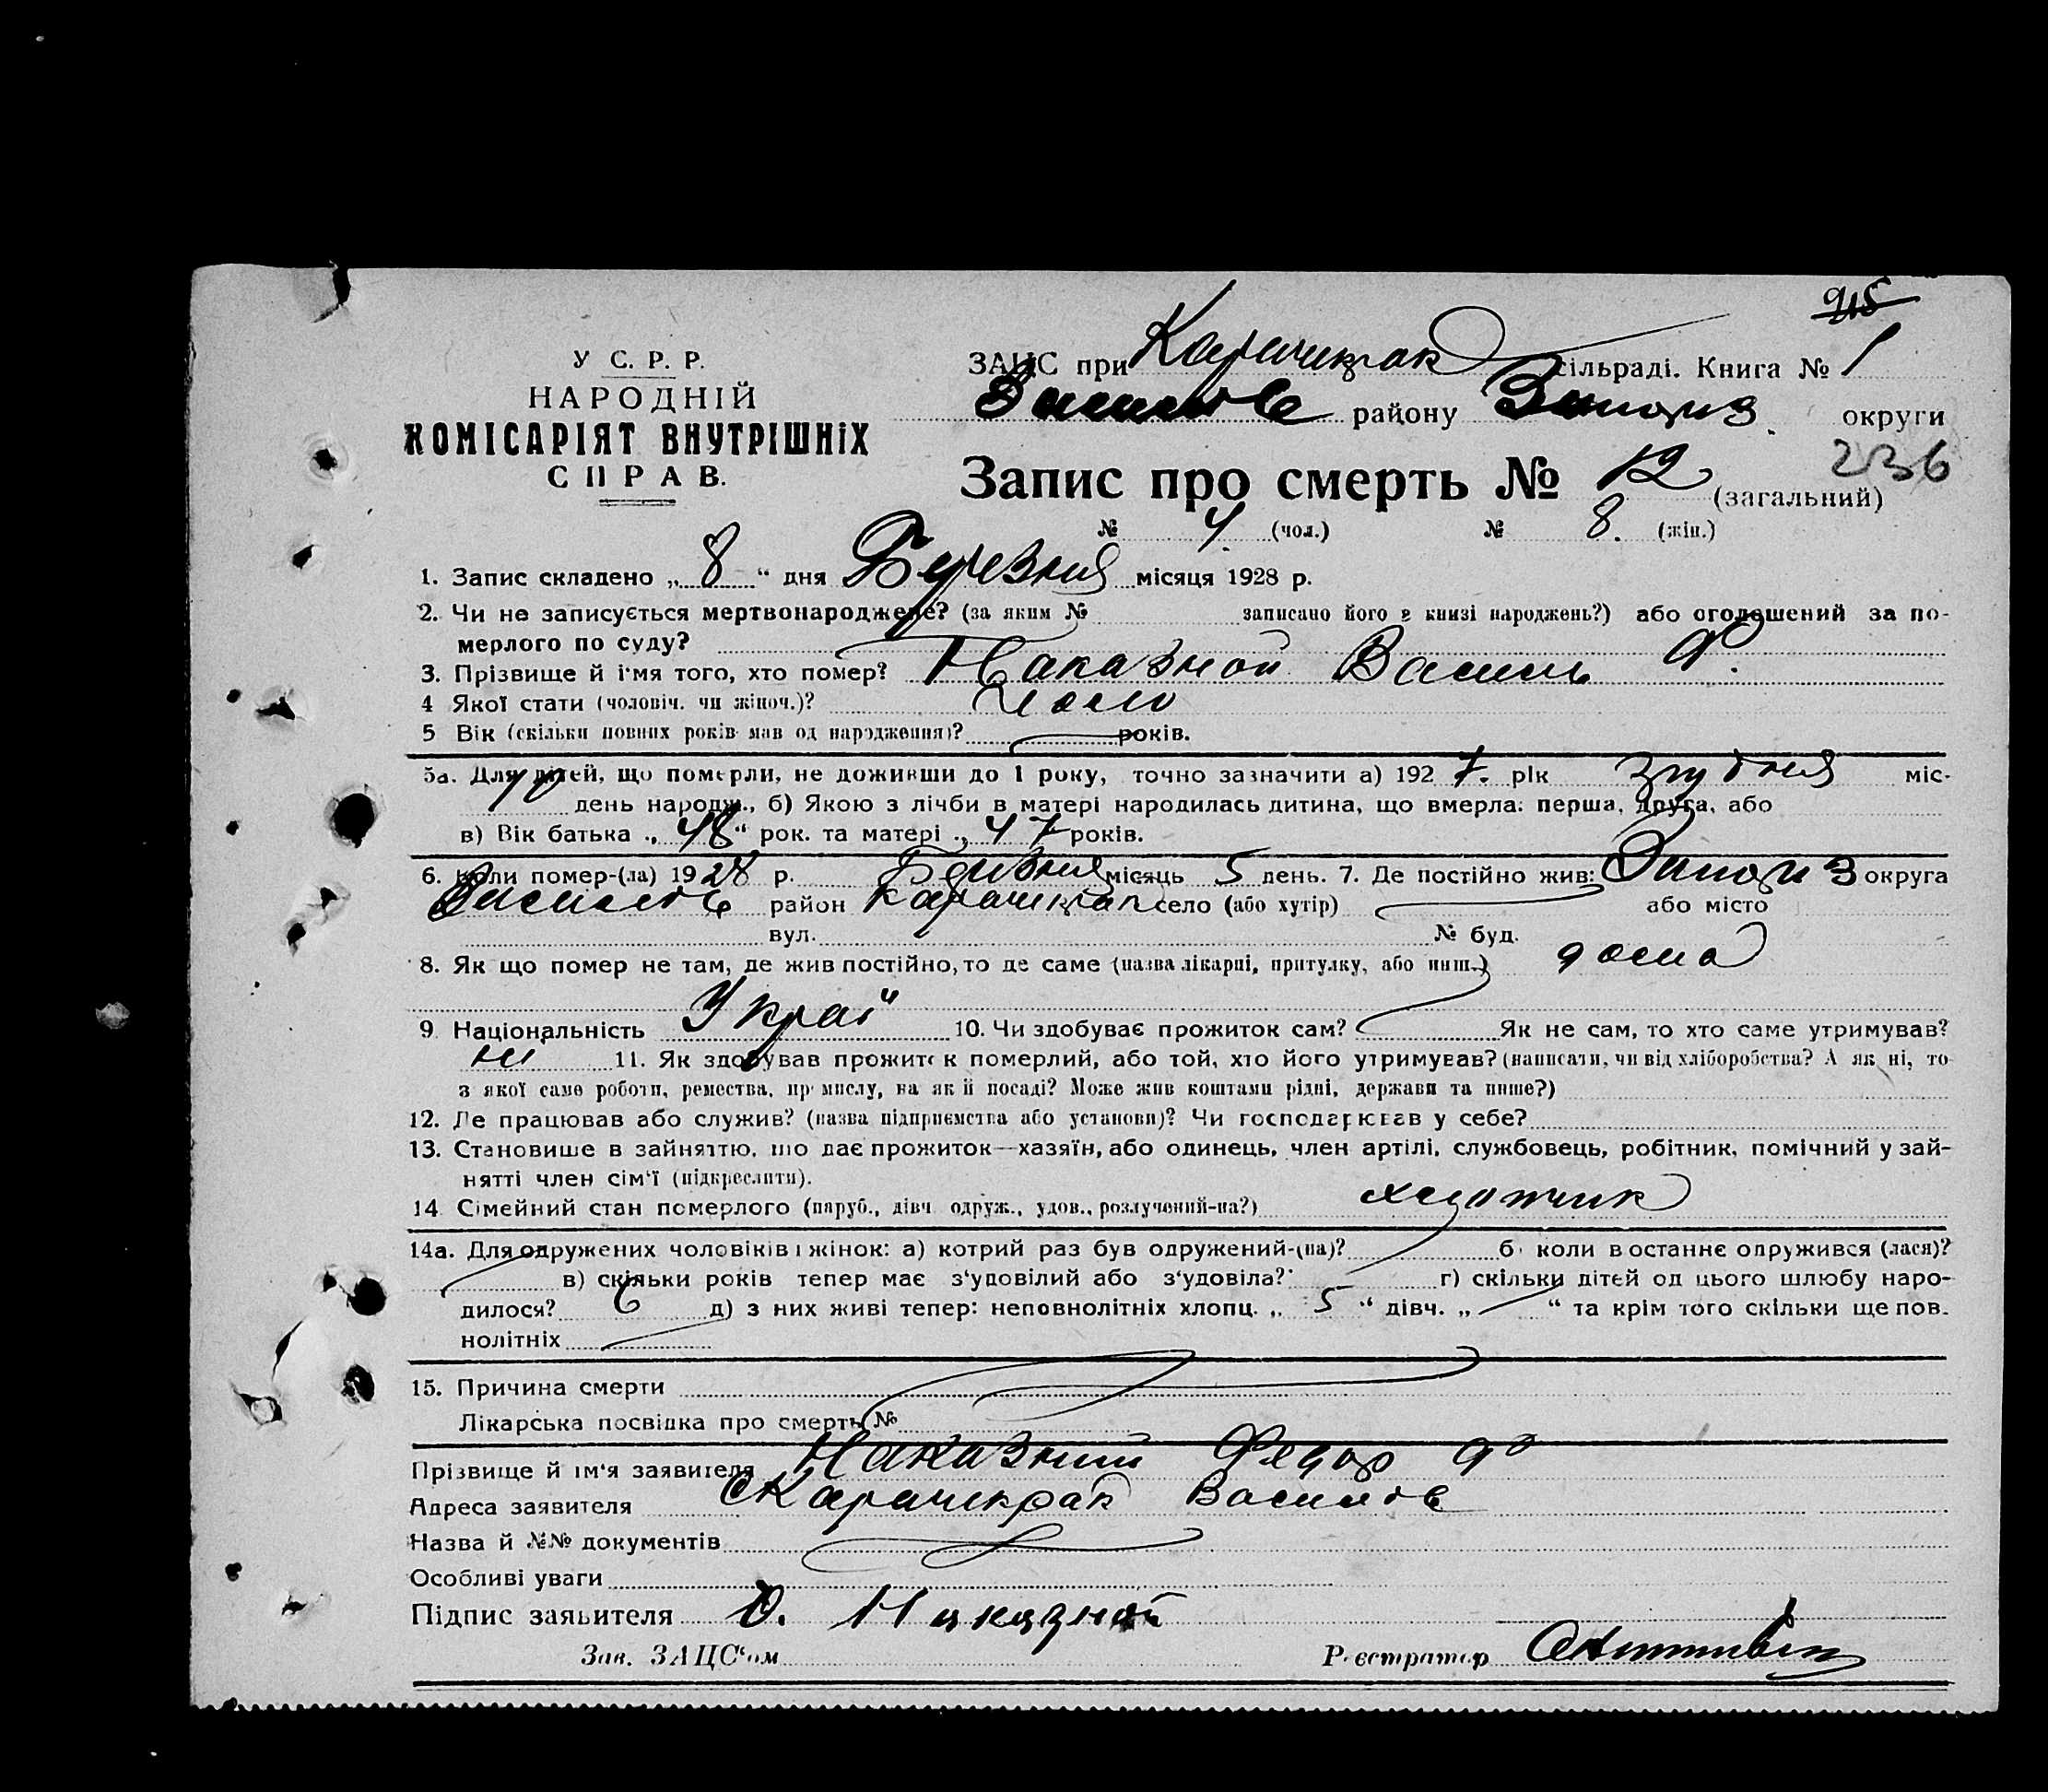 У С. Р. Р.
НАРОДНІЙ
КОМІСАРІЯТ ВНУТРІШНІХ
СПРАВ.
ЗАЦС при Карачикрак сільраді. Книга № 1
Василів району Запоріз округи
236
Запис про смерть № 12 (загальний)
№ 4. (чол.) № 8. (жін.)
1. Запис складено „ 8 “ дня Березня місяця 1928 р.
2. Чи не записується мертвонароджене? (за яким № записано його в книзі народжень?) або оголошений за по-
мерлого по суду?
3. Прізвище й ім'я того, хто помер? Наказной Василь Ф.
4 Якої стати (чоловіч. чи жіноч.)? чоло
5 Вік (скільки повних років мав од народження)? років.
5а. Для дітей, що померли, не доживши до 1 року, точно зазначити а) 192 7. рік грудня міс-
день народж., б) Якою з лічби в матері народилась дитина, що вмерла: перша, друга, або
в) Вік батька „ 48 “ рок. та матері „ 47 років.
6. Коли помер-(ла) 1928 р. Березня місяць 5 день. 7. Де постійно жив: Запоріз округа
Василів район Карачикрак село (або хутір) або місто
вул. № буд.
8. Як що помер не там, де жив постійно, то де саме (назва лікарні, притулку, або инш.) дома
9 Національність Украї 10. Чи здобуває прожиток сам? Як не сам, то хто саме утримував?
ні 11. Як здобував прожиток померлий, або той, хто його утримував? (написати, чи від хліборобства? А як ні, то
з якої саме роботи, ремества, промислу, на якій посаді? Може жив коштами рідні, держави та инше?)
12. Де працював або служив? (назва підприємства або установи)? Чи господарював у себе?
13. Становище в зайняттю, що дає прожиток—хазяїн, або одинець, член артілі, службовець, робітник, помічний у зай-
нятті член сім'ї (підкреслити).
14 Сімейний стан померлого (паруб., дівч. одруж., удов., розлучений-на?)
14а. Для одружених чоловіків і жінок: а) котрий раз був одружений-(на)? б) коли востаннє одружився (лася)?
в) скільки років тепер має з'удовілий або з'удовіла? г) скільки дітей од цього шлюбу наро-
дилося? 6 д) з них живі тепер: неповнолітніх хлопц. „ 5 “ дівч. „ “ та крім того скільки ще пов-
нолітніх
15. Причина смерти
Лікарська посвідка про смерть №
Прізвище й ім'я заявителя Наказний Федор Ф
Адреса заявителя Карачекрак Василів
Назва й №№ документів
Особливі уваги
Підпис заявителя Ф. Наказной
Зав. ЗАЦС'ом Реєстратор